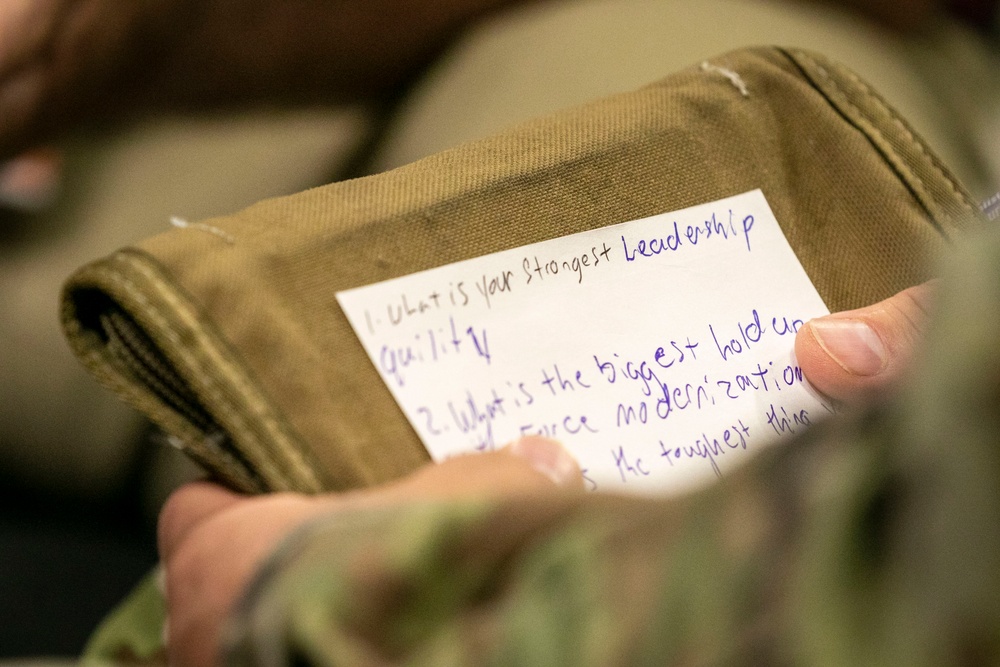 1. What is your Strongest Leadership
quility
2. What is the biggest hold up
Force modernization
the toughest thing